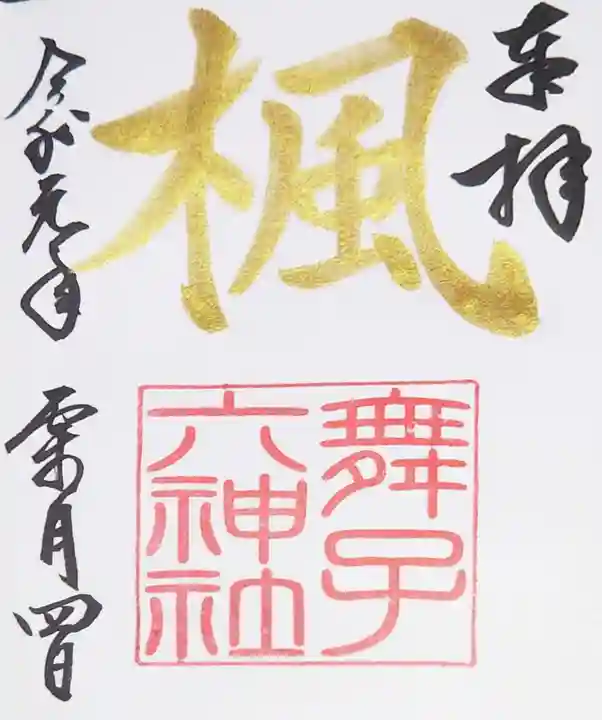 奉拝
楓
舞子
六神社
令和元年
霜月四日